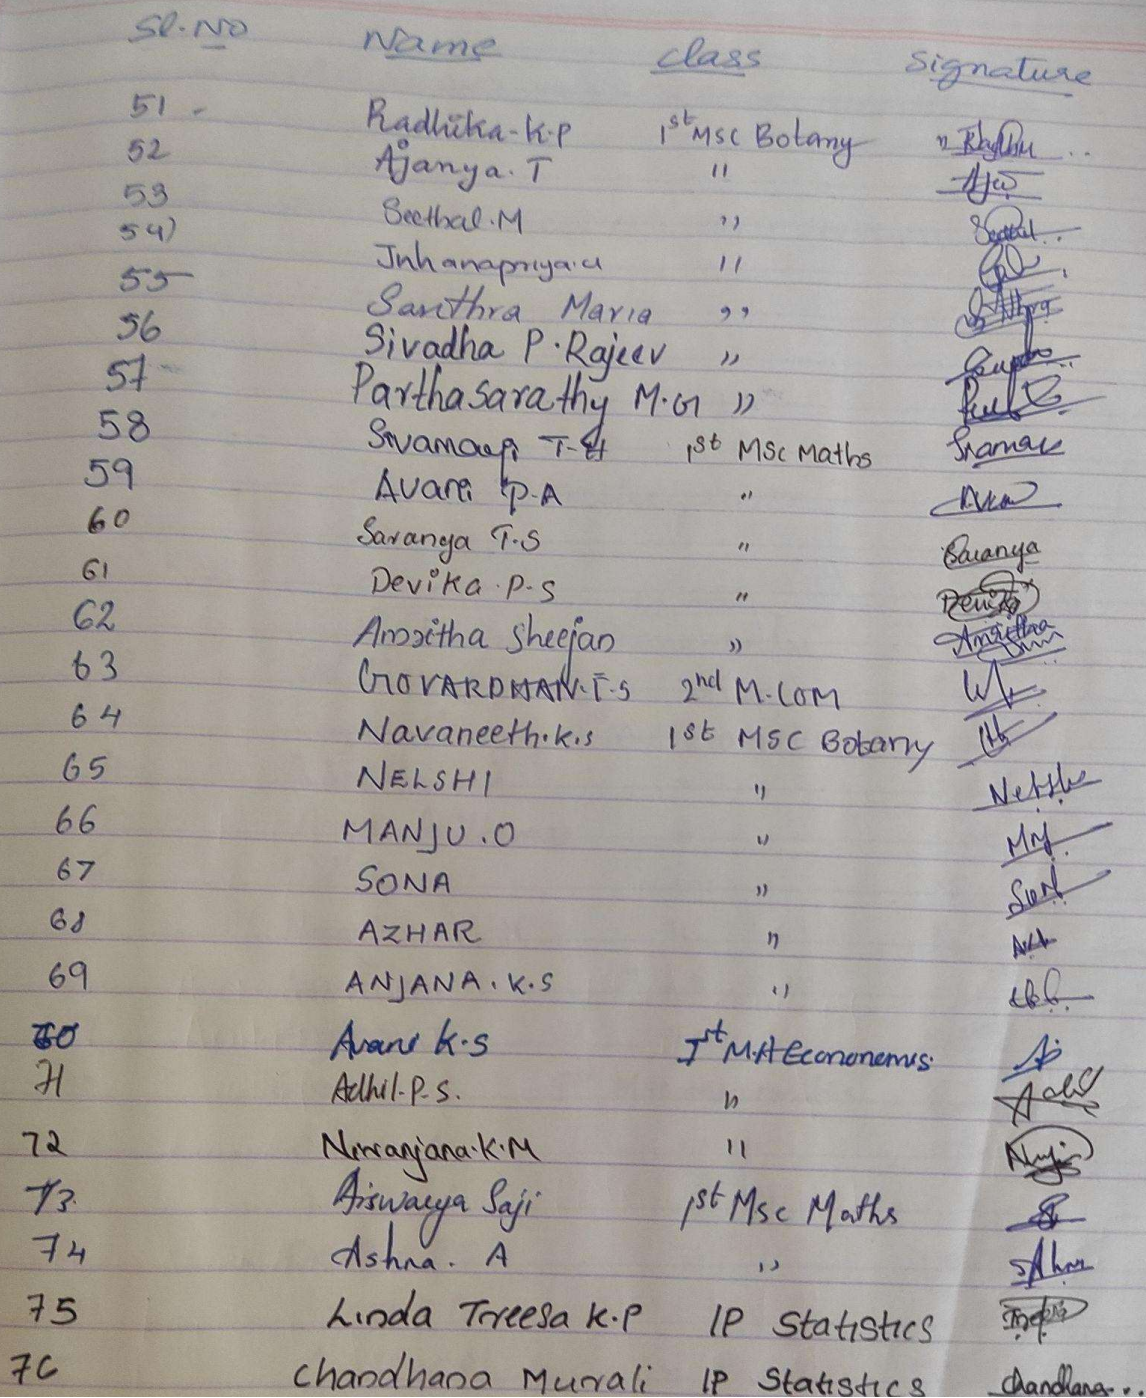 Sl.No Name class Signature
51 - Radhika-K.P 1st MSC Botany
52 Ajanya.T "
53 Seethal.M "
54) Jnhanapriya.u "
55 Santhra Maria "
56 Sivadha P.Rajeev "
57 Parthasarathy M.G "
58 T-H 1st MSc Maths
59 Avani P.A "
60 Saranya T.S " Saranya
61 Devika.P-S " Devika
62 Amritha Sheejan " Amritha
63 GOVARDHAN.T-S 2nd M.COM
64 Navaneeth.k.s 1st MSC Botany
65 NELSHI "
66 MANJU.O "
67 SONA "
68 AZHAR "
69 ANJANA.K.S "
70 Avani K.S Ist M.A
71 Adhil.P-S. "
72 Niranjana.K.M "
73. Aiswarya Saji 1st Msc Maths
74 Ashna. A "
75 Linda Treesa K.P IP Statistics
76 Chandhana Murali IP Statistics Chandhana..